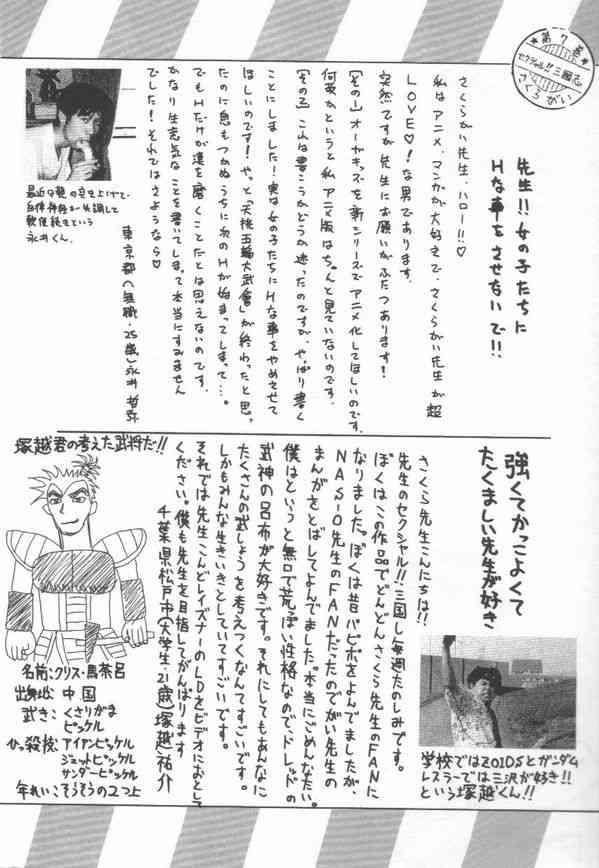 ★第7巻★
セクシャル!!三國志
さくらがい
先生!!女の子たちに
Hな事をさせないで!!
さくらがい先生、ハロー!!♡
私はアニメ、マンガが大好きで、さくらがい先生が超
LOVE♡!な男であります。
突然ですが先生にお願いがふたつあります!
[その1]オーガキッズを新シリーズでアニメ化してほしいのです。
何故かというと私、アニメ版はちゃんと見ていないのです。
[その2]これは書こうかどうか迷ったのですが、やっぱり書く
ことにしました!実は女の子たちにHな事をやめさせて
ほしいのです!やっと「天桃五輪大武會」が終わったと思っ
たのに息もつかぬうちに次のHが始まってしまって…。
でもHだけが漢を磨くことだとは思えないのです。
かなり生意気なことを書いてしまって本当にすみません
でした!それではさようなら♡
東京都(無職・25歳)永井哲弥
最近
自律神経
軟便続きという
永井くん。
強くてかっこよくて
たくましい先生が好き
さくら先生こんにちは!!
先生のセクシャル!!三国し毎週たのしみです。
ぼくはこの作品でどんどんさくら先生のFANに
なりました。ぼくは昔パピポをよんでましたが、
NAS-O先生のFANだったのでがい先生の
まんがをとばしてよんでました。本当にごめんなたい。
僕はというと無口で荒っぽい性格なので、ドレッドの
武神の呂布が大好きです。それにしてもあんなに
たくさんの武しょうを考えつくなんてすごいです。
しかもみんな生きいきとしていてすごいです。
それでは先生こんどレイズナーのLDをビデオにおとして
ください。僕も先生を目指してがんばります
千葉県松戸市(大学生・21歳)塚越祐介
学校ではZOIDSとガンダム
レスラーでは三沢が好き!!
という塚越くん!!
塚越君の考えた武将だ!!
名前:クリス・馬茶呂
出身地:中国
武き:くさりがま
ピッケル
ひっ殺技:アイアンピッケル
ジェットピッケル
サンダーピッケル
年れい:そうそうの2つ上